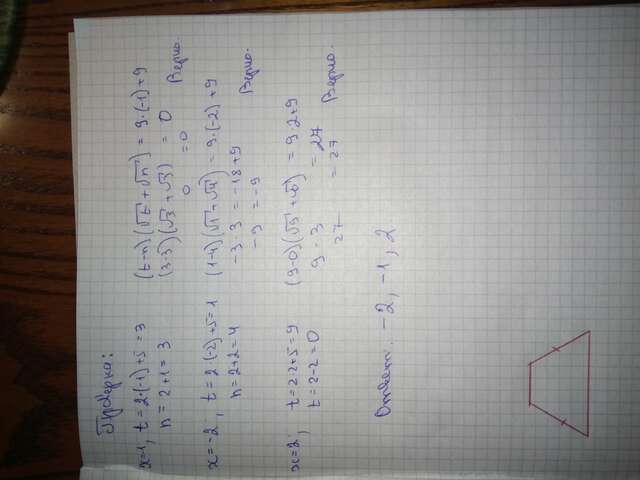 Проверка:
x=1, t = 2·(-1)+5 = 3 (t-n)(√t + √n) = 9·(-1)+9
n = 2+1 = 3 (3-3)(√3+√3) = 0
0 = 0 Верно.
x = -2; t = 2(-2)+5 = 1 (1-4)(√1+√4) = 9·(-2)+9
n = 2+2 = 4 -3·3 = -18+9
-9 = -9 Верно.
x = 2; t = 2·2+5 = 9 (9-0)(√9+√0) = 9·2+9
t = 2-2 = 0 9·3 = 27
27 = 27 Верно.
Ответ. -2, -1, 2